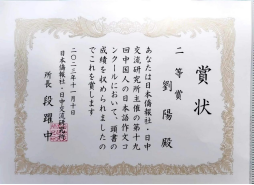 賞状
二等賞
劉陽殿
あなたは日本僑報社・日中
交流研究所主催の第十九
回中国人の日本語作文コ
ンクールにおいて、頭書の
成績を収められましたの
でこれを賞します
二〇二三年十一月十日
日本僑報社・日中交流研究所
所長 段躍中